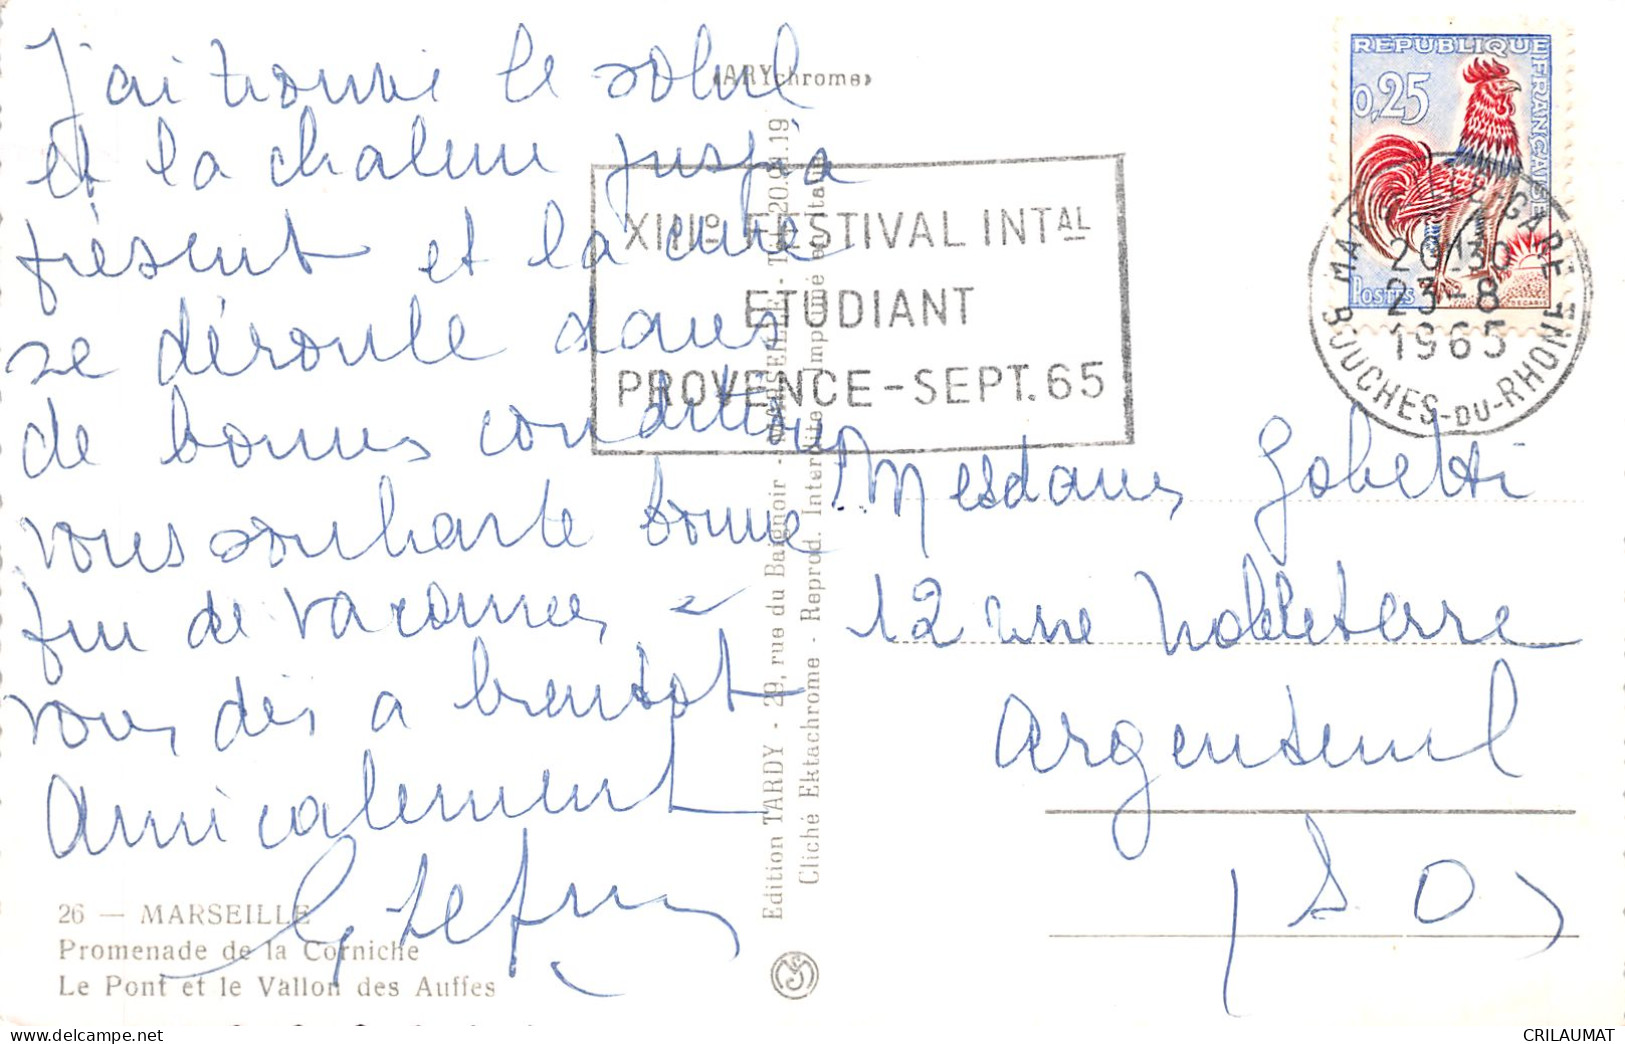 J'ai trouvé le soleil
et la chaleur jusqu'à
présent et la cure
se déroule dans
de bonnes conditions
vous souhaite bonne
fin de vacances
vous dis à bientôt
Amicalement
26 — MARSEILLE
Promenade de la Corniche
Le Pont et le Vallon des Auffes
«ARYchrome»
Edition TARDY - 29, rue du Baignoir - MARSEILLE - Tél. 20.01.19
Cliché Ektachrome - Reprod. Interdite - Imprimé en Italie
XIIIº FESTIVAL INTAL
ETUDIANT
PROVENCE - SEPT. 65
REPUBLIQUE FRANÇAISE
0,25
POSTES
GARE
20H30
23-8
1965
BOUCHES-DU-RHONE
Mesdames Gobetti
12 rue Nobleterre
Argenteuil
(S O)
CRILAUMAT